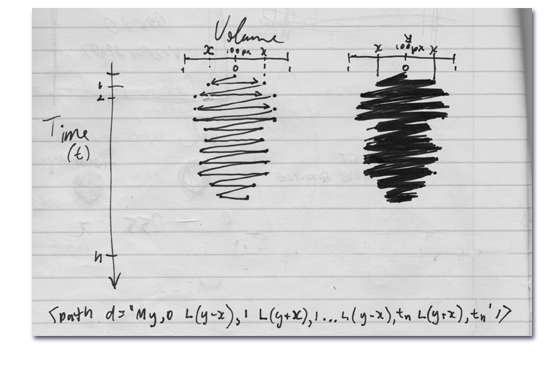 Volume
x 100px x
y
x 100px x
0
0
1
2
Time
(t)
n
<path d="My,0 L(y-x),1 L(y+x),1... L(y-x),tn L(y+x),tn" />